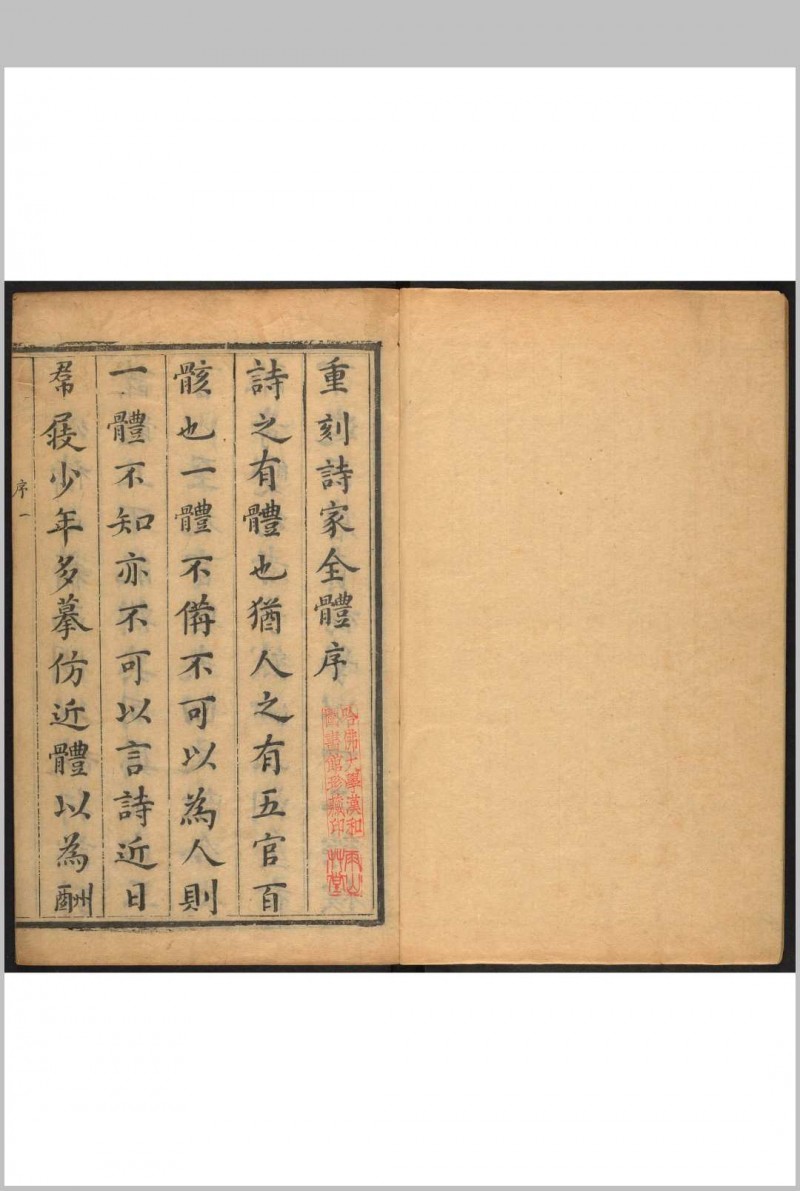 重刻詩家全體序
哈佛大學漢和
圖書館珍藏印
詩之有體也猶人之有五官百
骸也一體不備不可以為人則
一體不知亦不可以言詩近日
帬屐少年多摹仿近體以為酬
序一